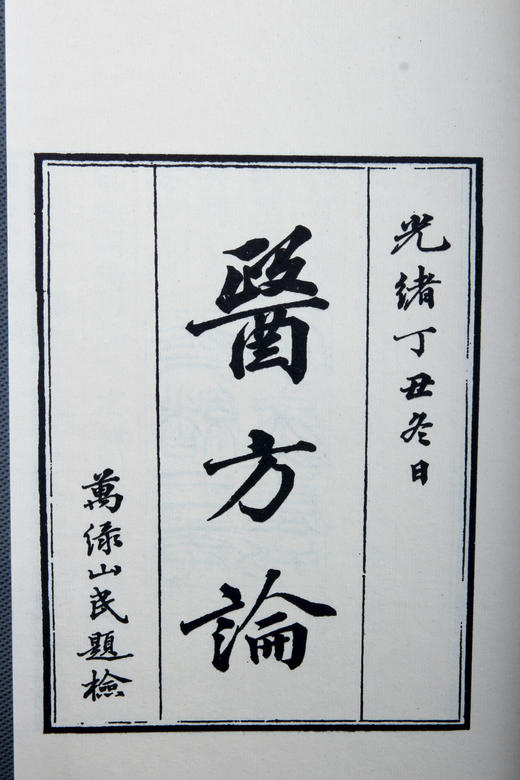 光緒丁丑冬日
醫方論
萬綠山民題檢